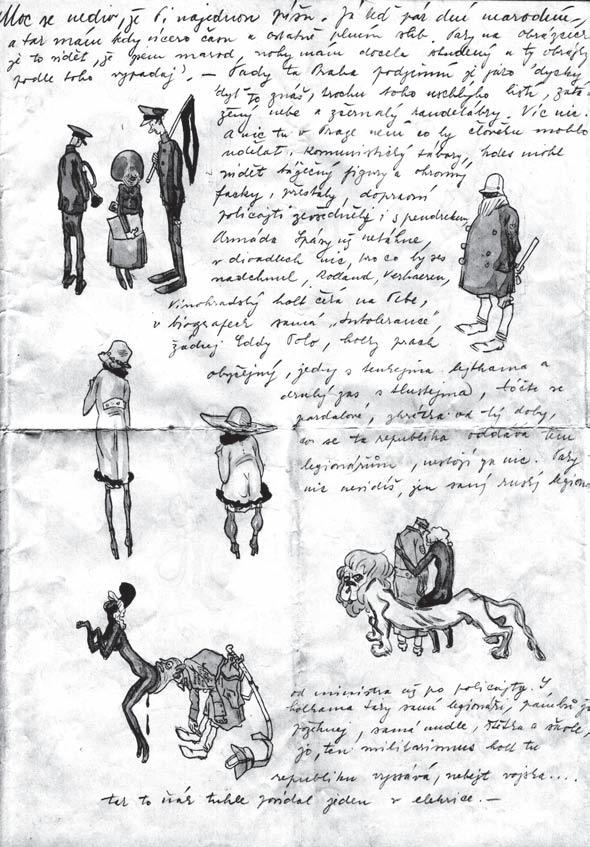 Moc se nediv, že Ti najednou píšu. Já teď pár dní marodím,
a tak mám kdy vícero času a ostatně plnim slib. Taky na obrázcích
je to vidět, že jsem marod, nohy mám docela studený a ty obrázky
podle toho vypadaj. — Tady ta Praha podzimní je jako dycky
dyť to znáš, trochu toho uschlýho listí, zata-
žený nebe a zčernalý kandelábry. Víc nic.
A nic tu v Praze není co by člověk mohl
udělat, komunistický tábory, kdes mohl
vidět báječný figury a ohromný
facky, přestaly, dopravní
policajti zevšedněli i s pendrekem,
Armáda Spásy už netáhne,
v divadlech nic, pro co by ses
nadchnul, Rolland, Verhaeren,
Vinohradský holt čeká na Tebe,
v biografech samá „Intolerance"
žádnej Eddy Polo, holky prach
obyčejný, jedny s tenkejma lejtkama a
druhý zas s tlustejma, točíte se
pardálové, zkrátka od tý doby,
co se ta republika oddává těm
legionářům, nestojí za nic. Taky
nic nevidíš, jen samý ruský legion
od ministra až po policajty. I
samý legionáři,
samá nudle, a škole,
jo, ten militarismus holt tu
republiku vyssává, nebejt vojska....
tak to ňák tuhle povídal jeden v elektrice. —